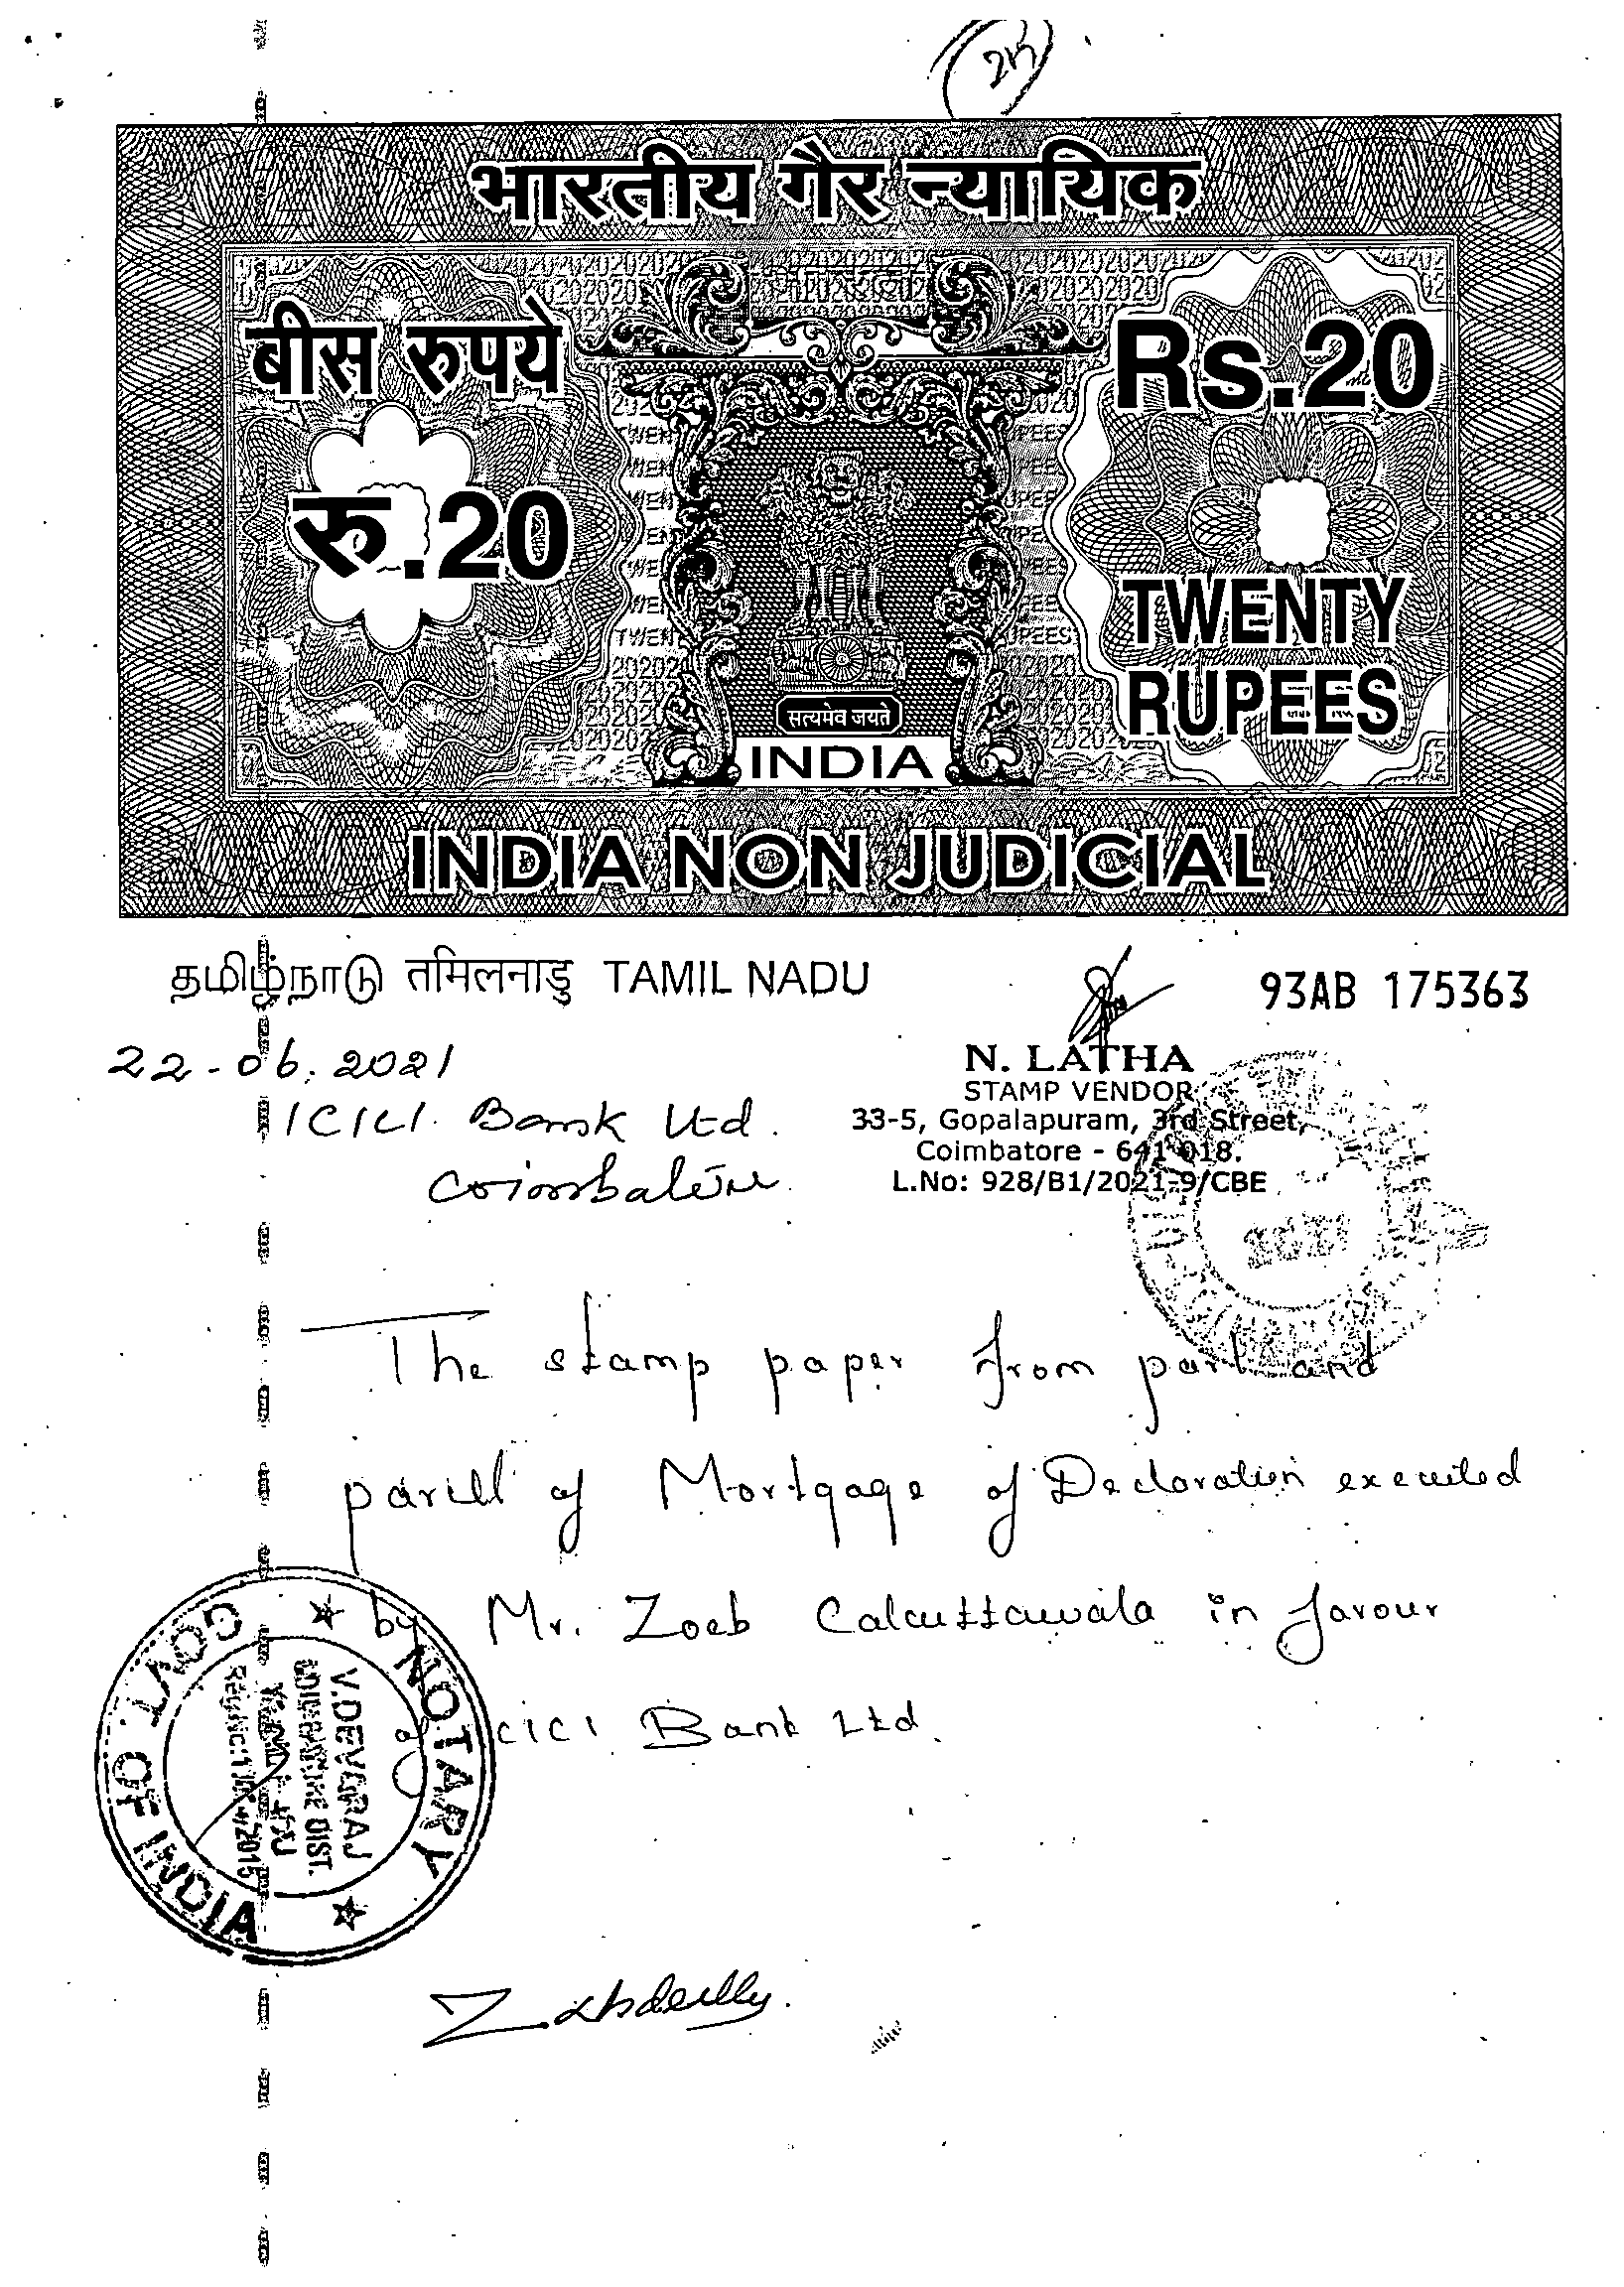 भारतीय गैर न्यायिक
बीस रुपये
Rs.20
रु.20
TWENTY
RUPEES
सत्यमेव जयते
INDIA
INDIA NON JUDICIAL
தமிழ்நாடு तमिलनाडु TAMIL NADU
93AB 175363
22-06.2021
ICICI Bank Ltd.
Coimbatore
N. LATHA
STAMP VENDOR
33-5, Gopalapuram, 3rd Street,
Coimbatore - 641 018.
L.No: 928/B1/2021-9/CBE
The stamp paper from part and
parcel of Mortgage of Declaration executed
by Mr. Zoeb Calcuttawala in favour
of ICICI Bank Ltd.
NOTARY
GOVT. OF INDIA
V.DEVARAJ
COIMBATORE DIST.